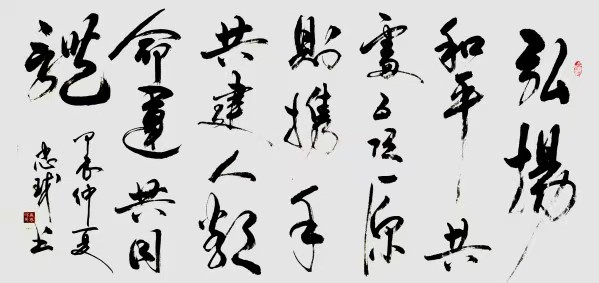 弘揚
和平共
處五項原
則携手
共建人類
命運共同
體
甲辰仲夏
忠 书